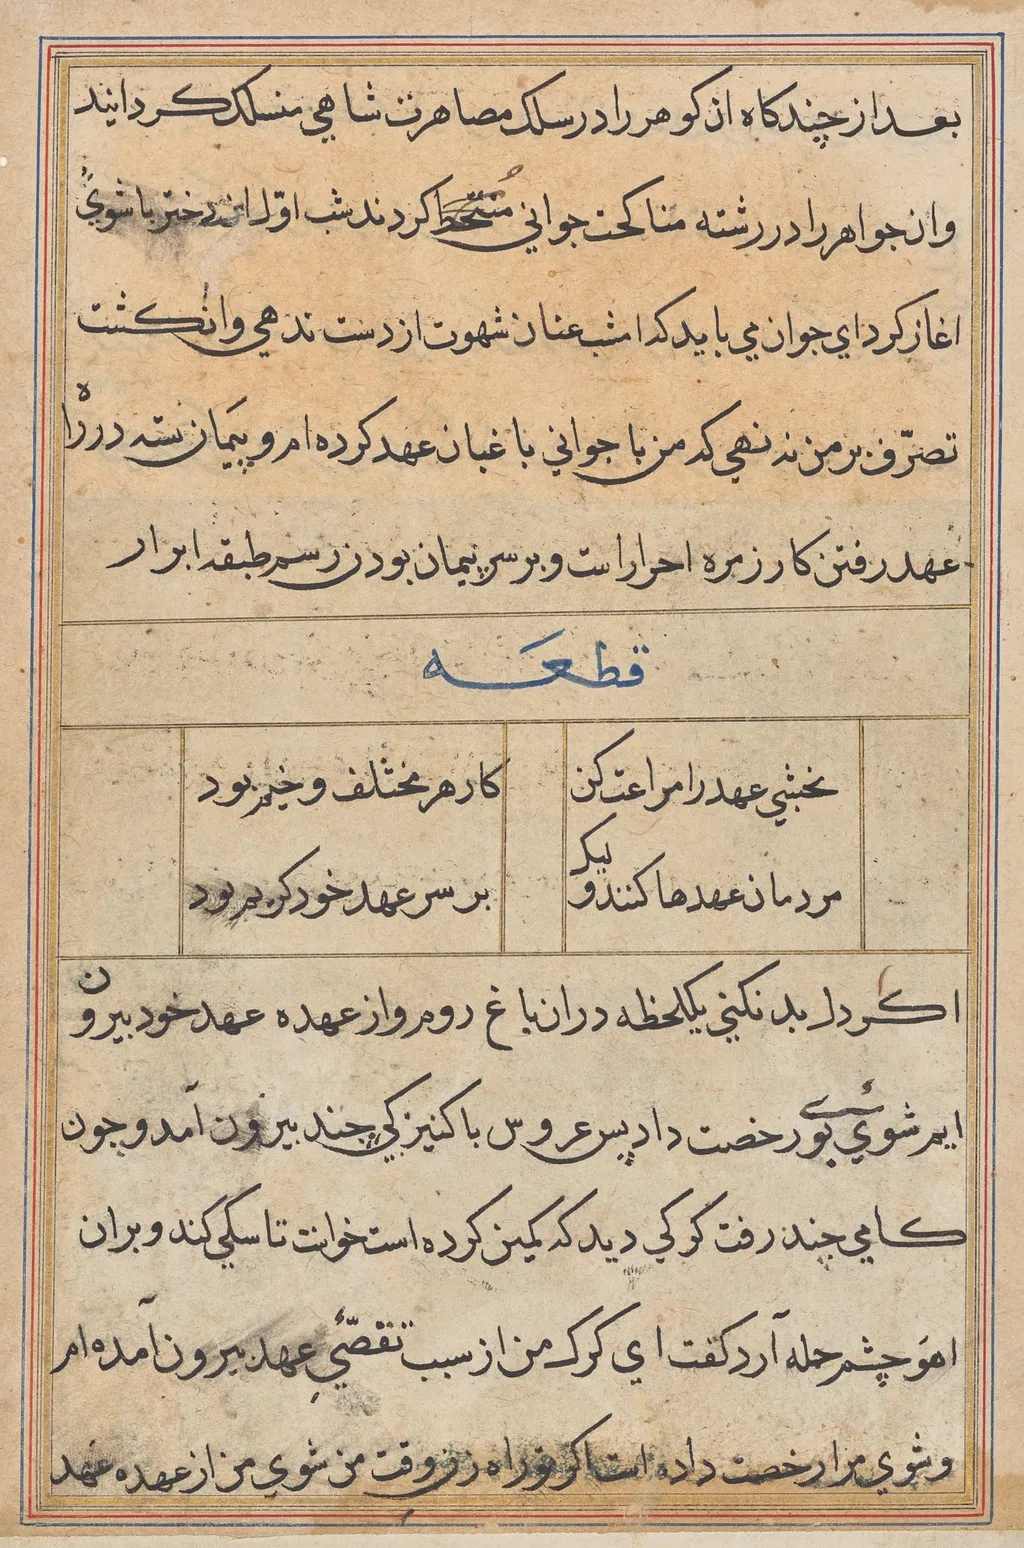 بعد از چند کاه ان کوهر را در سلک مصاهرت شاهي منسلک کردانید
وان جواهر را در رشته مناکحت جواني کردند شب اوّل ان دختر با شوي
اغاز کرد اي جوان مي باید که امشب عنان شهوت از دست ندهي وانکشت
تصرّف بر من ننهي که من با جواني باغبان عهد کرده ام و پیمان بسته در راه
عهد رفتن کار زمره احرار است و بر سر پیمان بودن رسم طبقه ابرار
قطعه
نخشبي عهد را مراعت کن
کار هر مختلف وخیم بود
مردمان عهدها کنند و لیک
بر سر عهد خود کریم بود
اکر دل بد نکني یکلحظه دران باغ روم و از عهده عهد خود بیرون
ایم شوي رخصت داد پس عروس با کنیزکي چند بیرون آمد و چون
کامي چند رفت کرکي دید که کمین کرده است خواست تا سکي کند و بران
اهو چشم حمله آرد کفت اي کرک من از سبب تقصّي عهد بیرون آمده ام
و شوي مرا رخصت داده است من شوي من از عهده عهد